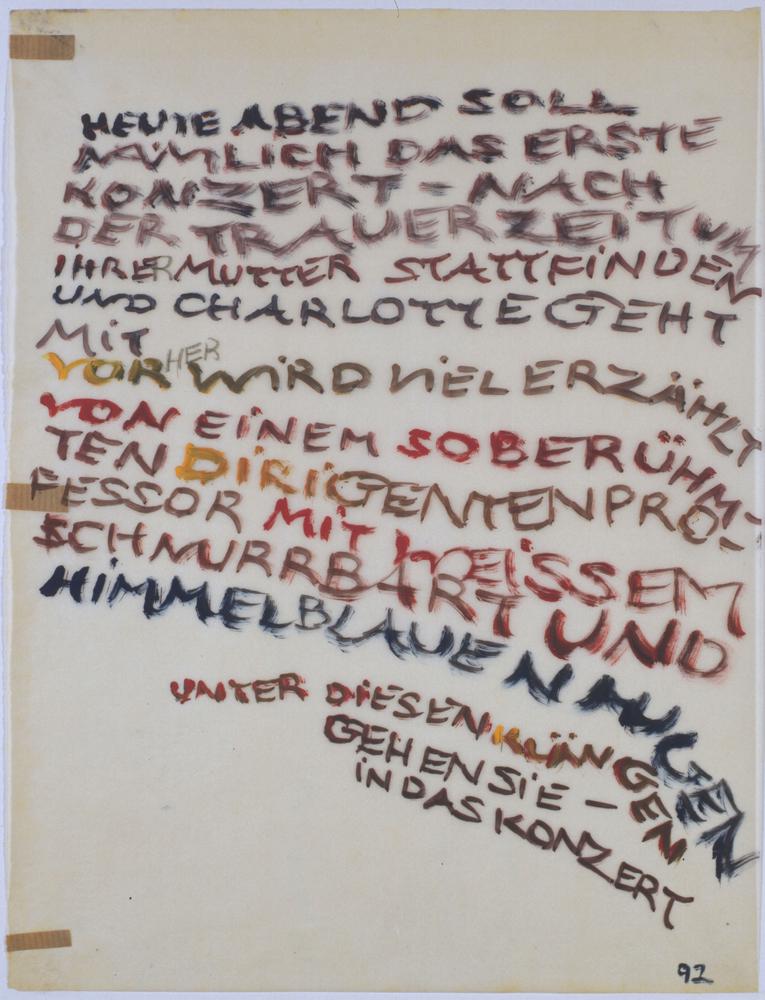 HEUTE ABEND SOLL
NÄMLICH DAS ERSTE
KONZERT - NACH
DER TRAUERZEIT UM
IHRER MUTTER STATTFINDEN
UND CHARLOTTE GEHT
MIT
VORHER WIRD VIEL ERZÄHLT
VON EINEM SO BERÜHM-
TEN DIRIGENTENPRO-
FESSOR MIT WEISSEM
SCHNURRBART UND
HIMMELBLAUEN AUGEN
UNTER DIESEN KLÄNGEN
GEHEN SIE -
IN DAS KONZERT
92